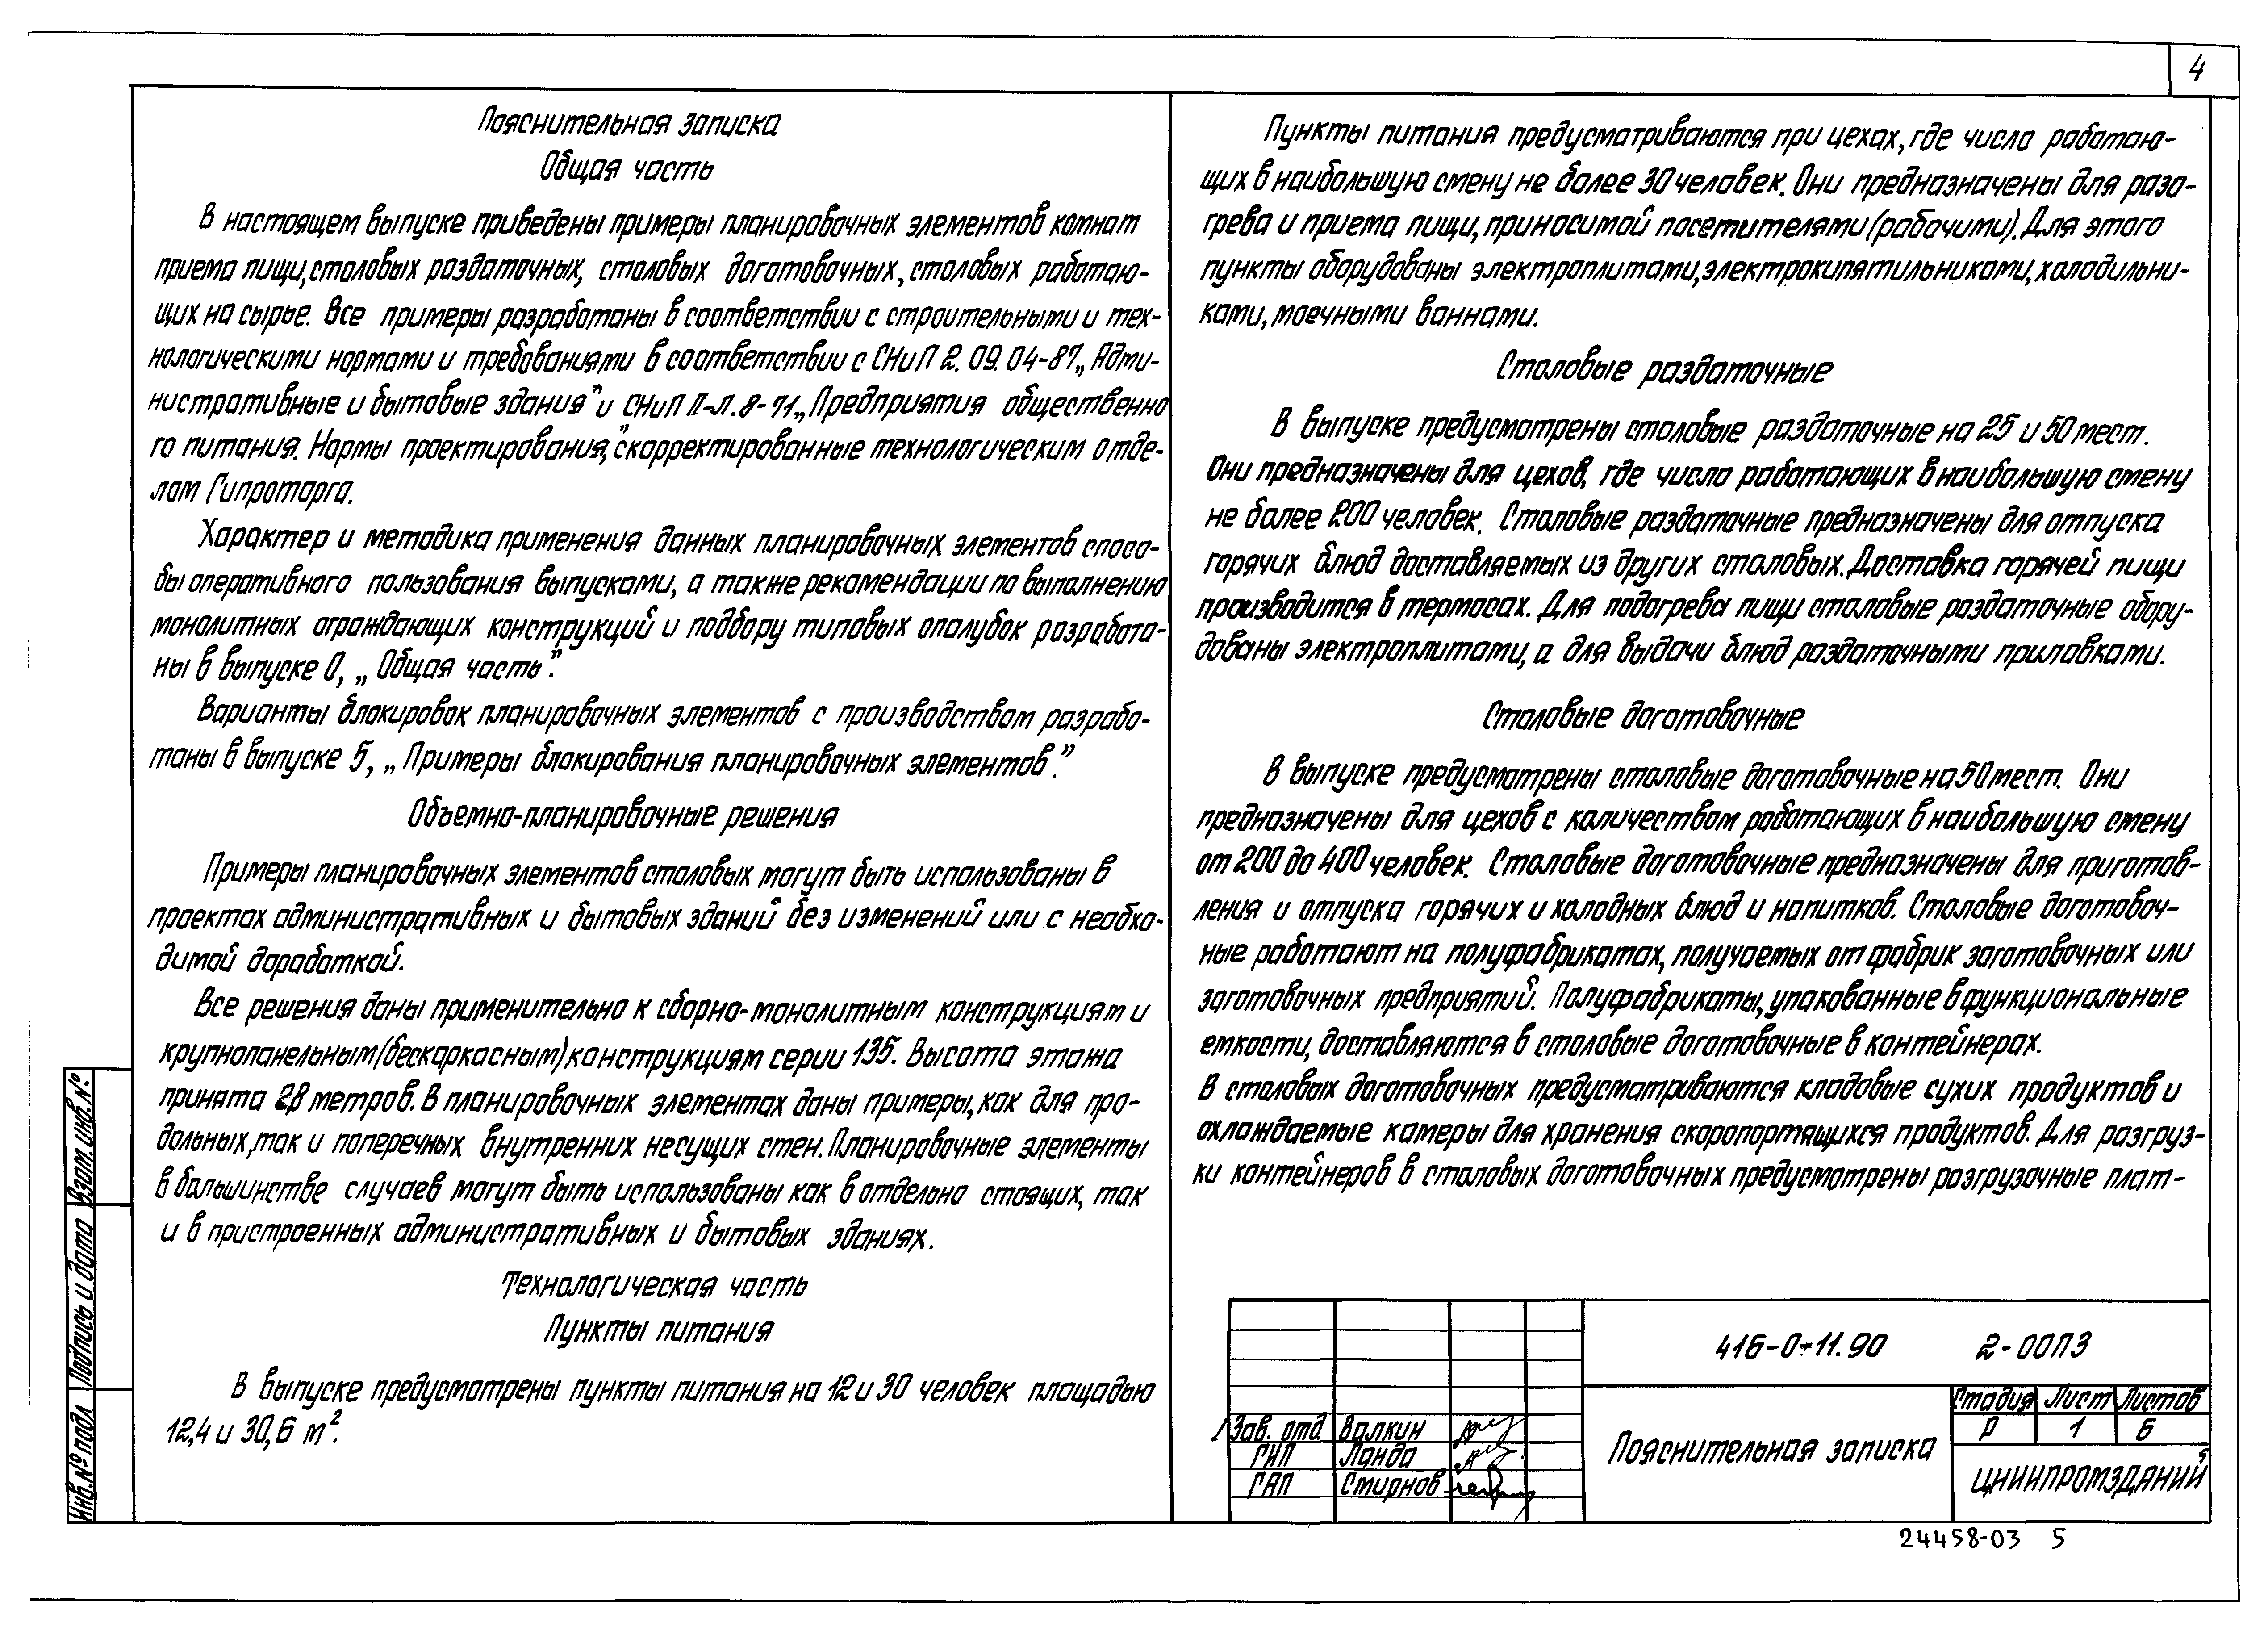 4
Пояснительная записка
Общая часть
В настоящем выпуске приведены примеры планировочных элементов комнат
приема пищи, столовых раздаточных, столовых доготовочных, столовых работаю-
щих на сырье. Все примеры разработаны в соответствии с строительными и тех-
нологическими нормами и требованиями в соответствии с СНиП 2.09.04-87 „Адми-
нистративные и бытовые здания" и СНиП II-Л.8-71 „Предприятия общественно
го питания. Нормы проектирования", скорректированные технологическим отде-
лом Гипроторга.
Характер и методика применения данных планировочных элементов спосо-
бы оперативного пользования выпусками, а также рекомендации по выполнению
монолитных ограждающих конструкций и подбору типовых опалубок разработа-
ны в выпуске 0, „Общая часть".
Варианты блокировок планировочных элементов с производством разрабо-
таны в выпуске 5, „Примеры блокирования планировочных элементов."
Объемно-планировочные решения
Примеры планировочных элементов столовых могут быть использованы в
проектах административных и бытовых зданий без изменений или с необхо-
димой доработкой.
Все решения даны применительно к сборно-монолитным конструкциям и
крупнопанельным (бескаркасным) конструкциям серии 135. Высота этажа
принята 2,8 метров. В планировочных элементах даны примеры, как для про-
дольных, так и поперечных внутренних несущих стен. Планировочные элементы
в большинстве случаев могут быть использованы как в отдельно стоящих, так
и в пристроенных административных и бытовых зданиях.
Технологическая часть
Пункты питания
В выпуске предусмотрены пункты питания на 12 и 30 человек площадью
12,4 и 30,6 м².
Пункты питания предусматриваются при цехах, где число работаю-
щих в наибольшую смену не более 30 человек. Они предназначены для разо-
грева и приема пищи, приносимой посетителями (рабочими). Для этого
пункты оборудованы электроплитами, электрокипятильниками, холодильни-
ками, моечными ваннами.
Столовые раздаточные
В выпуске предусмотрены столовые раздаточные на 25 и 50 мест.
Они предназначены для цехов, где число работающих в наибольшую смену
не более 200 человек. Столовые раздаточные предназначены для отпуска
горячих блюд доставляемых из других столовых. Доставка горячей пищи
производится в термосах. Для подогрева пищи столовые раздаточные обору-
дованы электроплитами, а для выдачи блюд раздаточными прилавками.
Столовые доготовочные
В выпуске предусмотрены столовые доготовочные на 50 мест. Они
предназначены для цехов с количеством работающих в наибольшую смену
от 200 до 400 человек. Столовые доготовочные предназначены для приготов-
ления и отпуска горячих и холодных блюд и напитков. Столовые доготовоч-
ные работают на полуфабрикатах, получаемых от фабрик заготовочных или
заготовочных предприятий. Полуфабрикаты, упакованные в функциональные
емкости, доставляются в столовые доготовочные в контейнерах.
В столовых доготовочных предусматриваются кладовые сухих продуктов и
охлаждаемые камеры для хранения скоропортящихся продуктов. Для разгруз-
ки контейнеров в столовых доготовочных предусмотрены разгрузочные плат-
Взам. инв. №
Подпись и дата
Инв. № подл
416-0-11.90 2-00ПЗ
Зав. отд. Валкин
ГИП Ланда
ГАП Смирнов
Пояснительная записка
Стадия Лист Листов
Р 1 6
ЦНИИПРОМЗДАНИЙ
24458-03 5